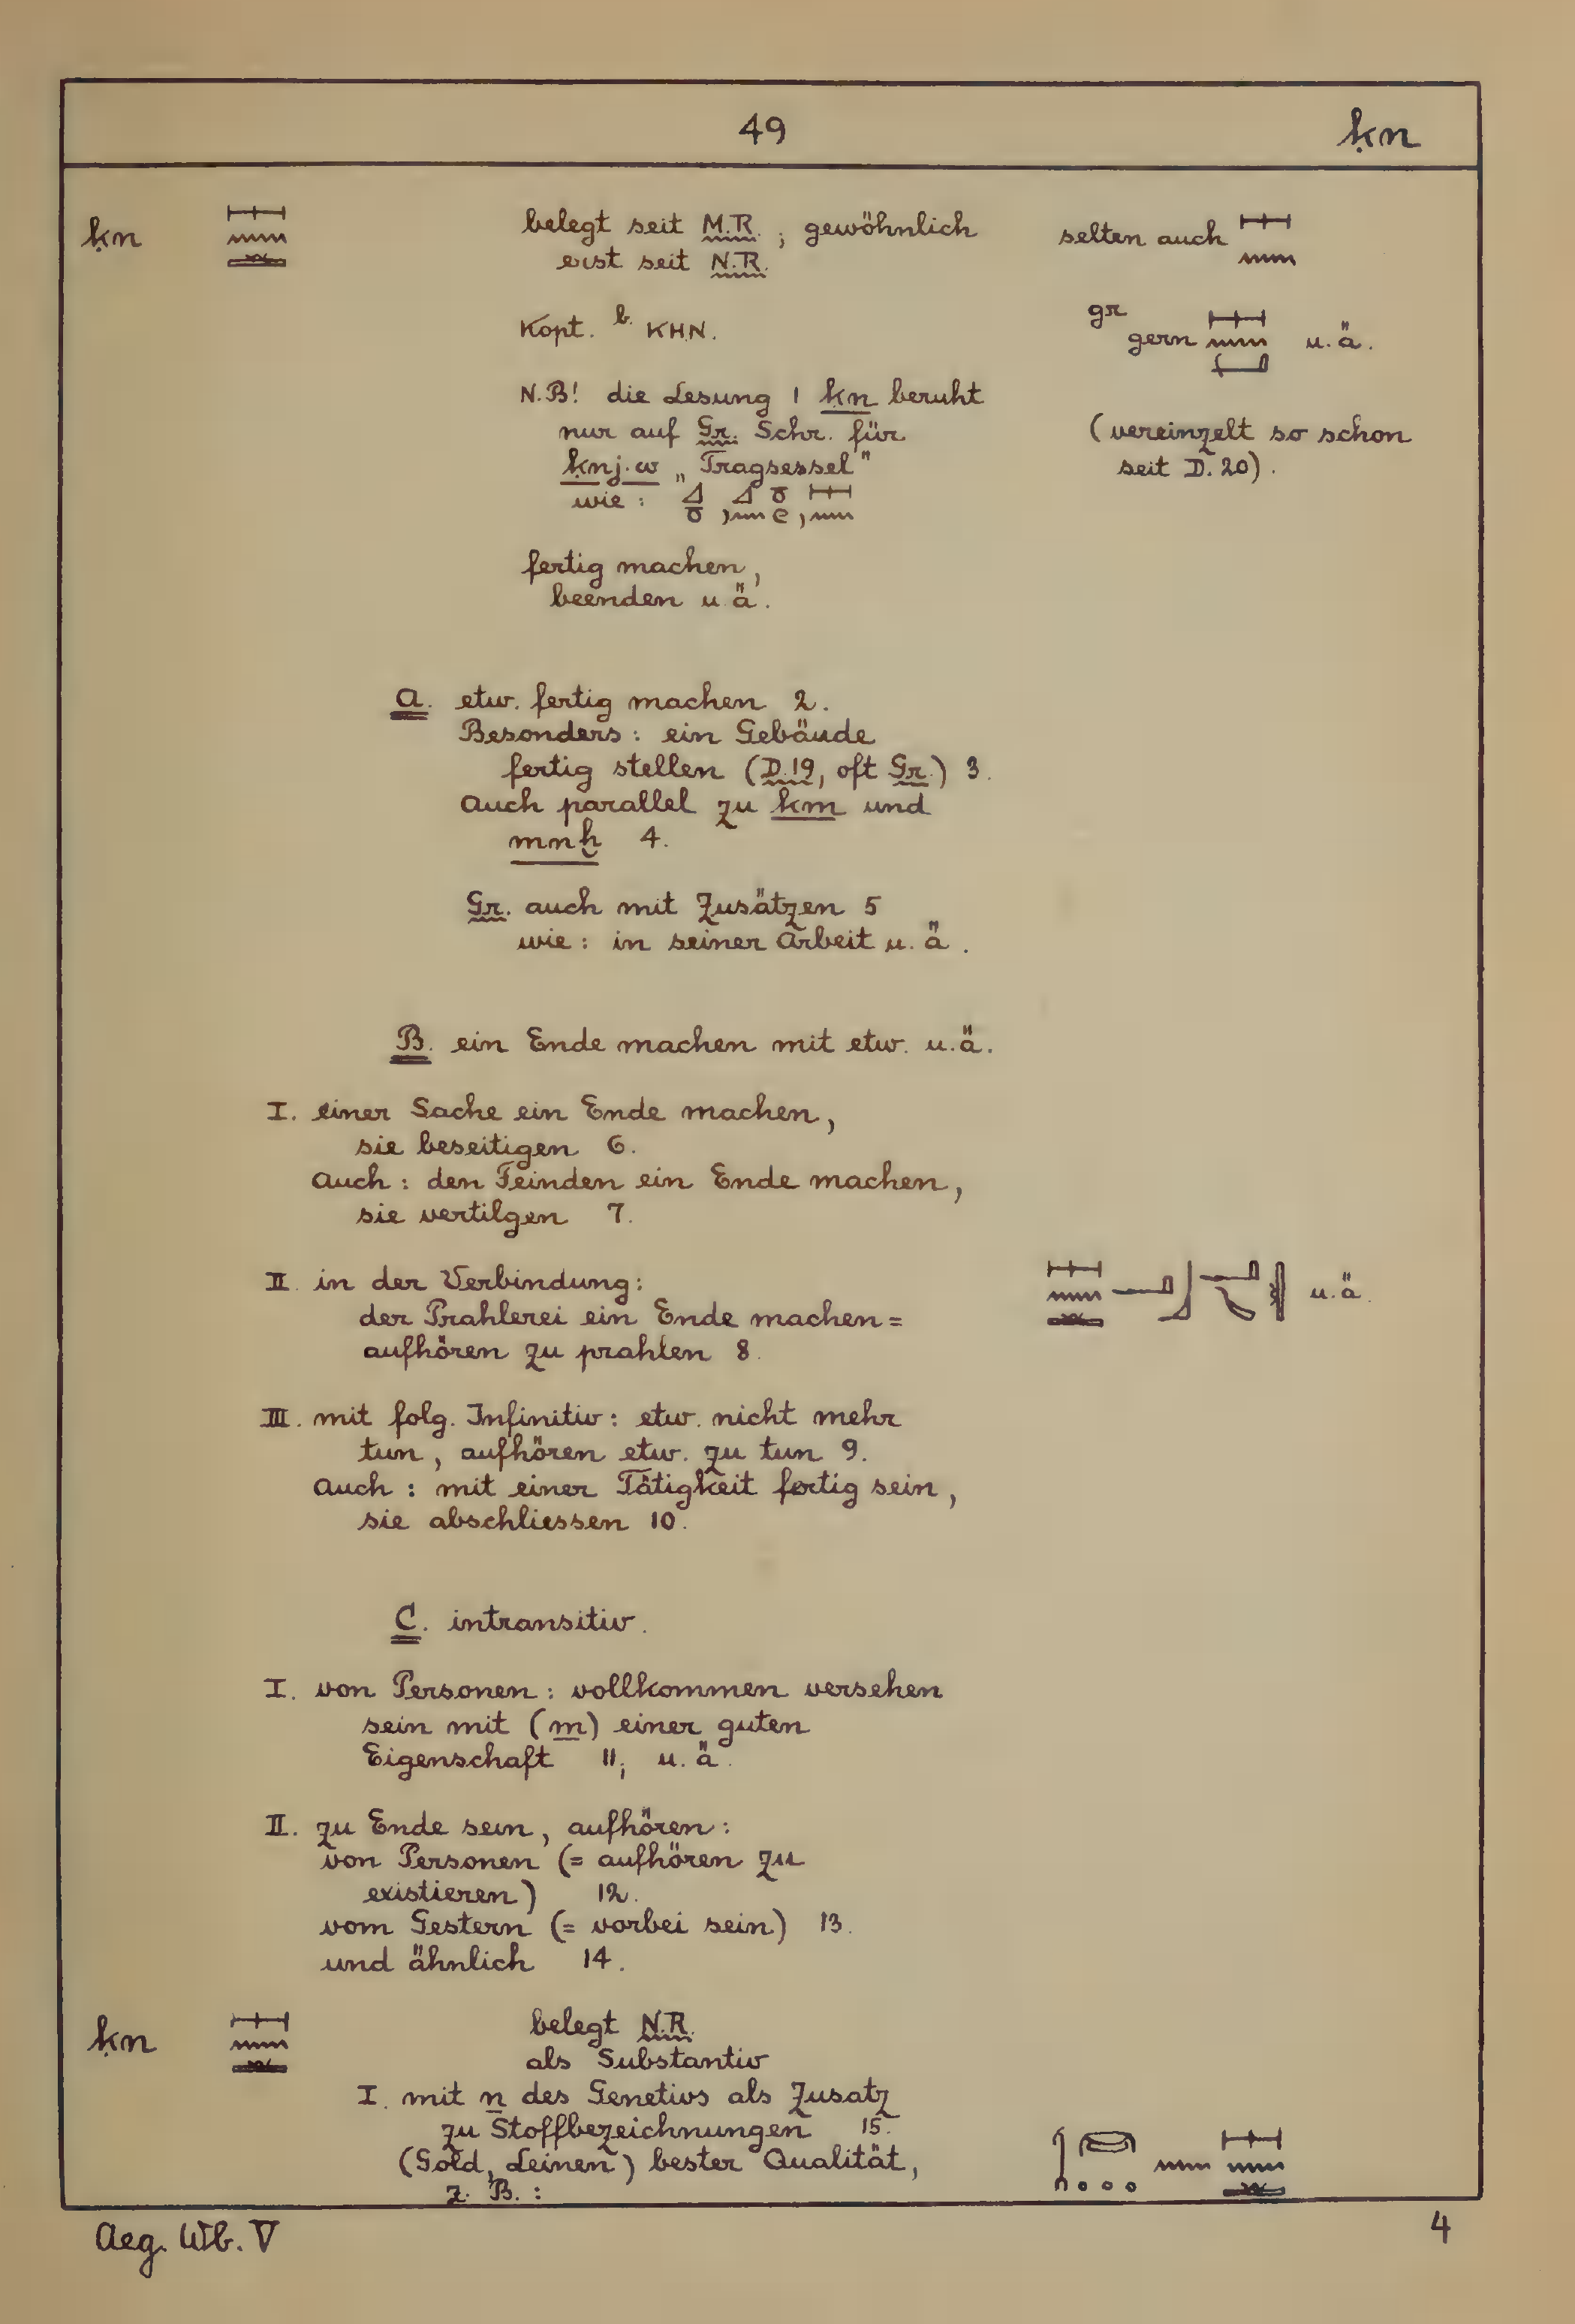 49 ḳn
ḳn belegt seit M.R.; gewöhnlich selten auch
erst seit N.R.
Kopt. b. KHN. gr
gern u.ä.
N.B! die Lesung 1 ḳn beruht
nur auf Gr. Schr. für (vereinzelt so schon
ḳnj.w „Tragsessel" seit D.20).
wie:
fertig machen,
beenden u.ä.
A. etw. fertig machen 2.
Besonders: ein Gebäude
fertig stellen (D.19, oft Gr.) 3.
Auch parallel zu km und
mnḫ 4.
Gr. auch mit Zusätzen 5
wie: in seiner Arbeit u.ä.
B. ein Ende machen mit etw. u.ä.
I. einer Sache ein Ende machen,
sie beseitigen 6.
Auch: den Feinden ein Ende machen,
sie vertilgen 7.
II. in der Verbindung: u.ä.
der Prahlerei ein Ende machen =
aufhören zu prahlen 8.
III. mit folg. Infinitiv: etw. nicht mehr
tun, aufhören etw. zu tun 9.
Auch: mit einer Tätigkeit fertig sein,
sie abschliessen 10.
C. intransitiv.
I. von Personen: vollkommen versehen
sein mit (m) einer guten
Eigenschaft 11; u.ä.
II. zu Ende sein, aufhören:
von Personen (= aufhören zu
existieren) 12.
vom Gestern (= vorbei sein) 13.
und ähnlich 14.
ḳn belegt N.R.
als Substantiv
I. mit n des Genetivs als Zusatz
zu Stoffbezeichnungen 15.
(Gold, Leinen) bester Qualität,
z. B.:
Aeg. Wb. V 4